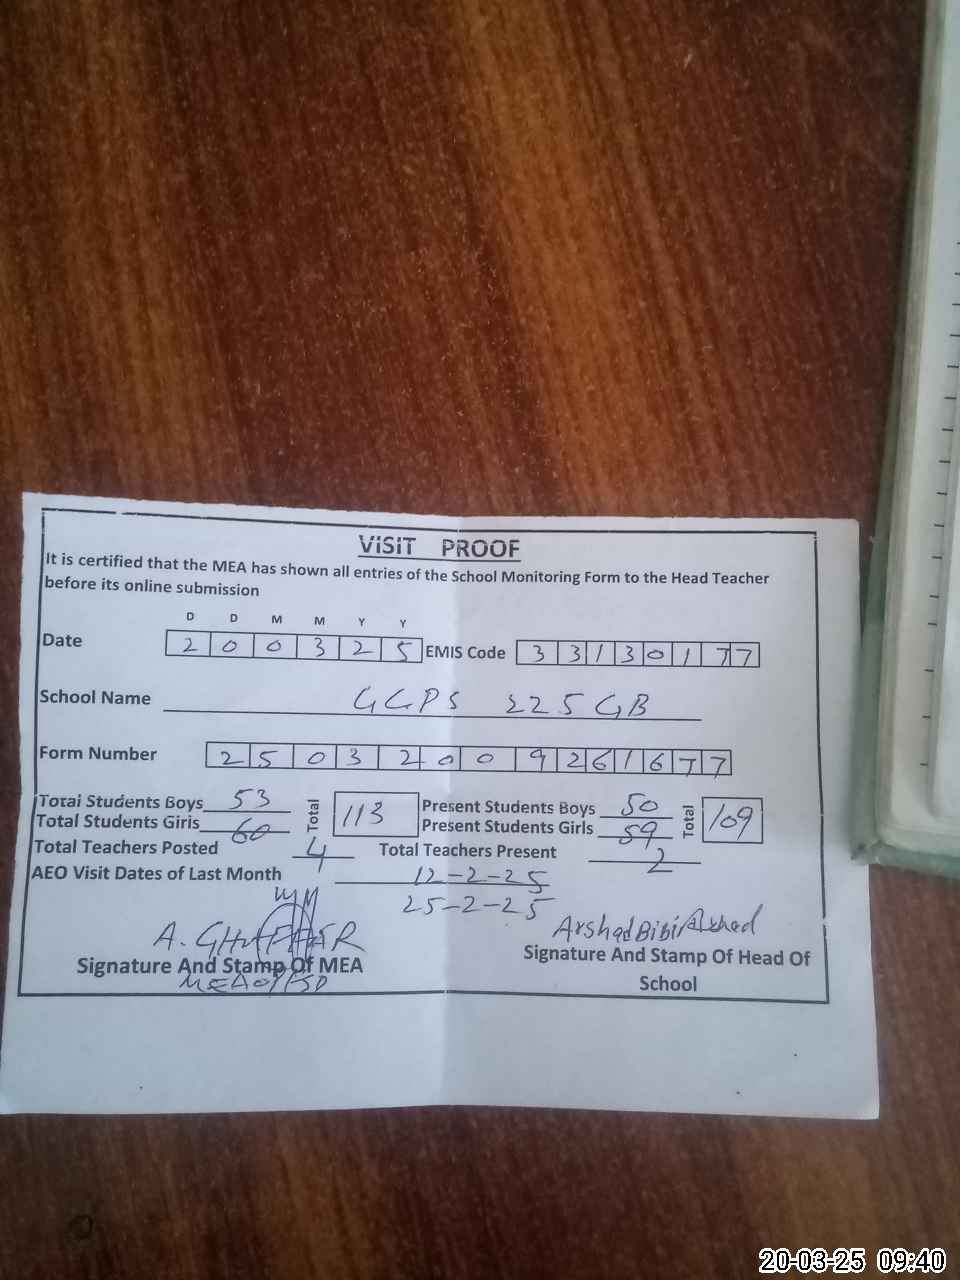 ViSiT PROOF
It is certified that the MEA has shown all entries of the School Monitoring Form to the Head Teacher
before its online submission
D D M M Y Y
Date 2 0 0 3 2 5 EMIS Code 3 3 1 3 0 1 7 7
School Name GGPS 225 GB
Form Number 2 5 0 3 2 0 0 9 2 6 1 6 7 7
Total Students Boys 53 Total 113 Present Students Boys 50 Total 109
Total Students Girls 60 Present Students Girls 59
Total Teachers Posted 4 Total Teachers Present 2
AEO Visit Dates of Last Month 12-2-25
25-2-25
A. Arshad Bibi Arshad
Signature And Stamp Of MEA Signature And Stamp Of Head Of
School
20-03-25 09:40